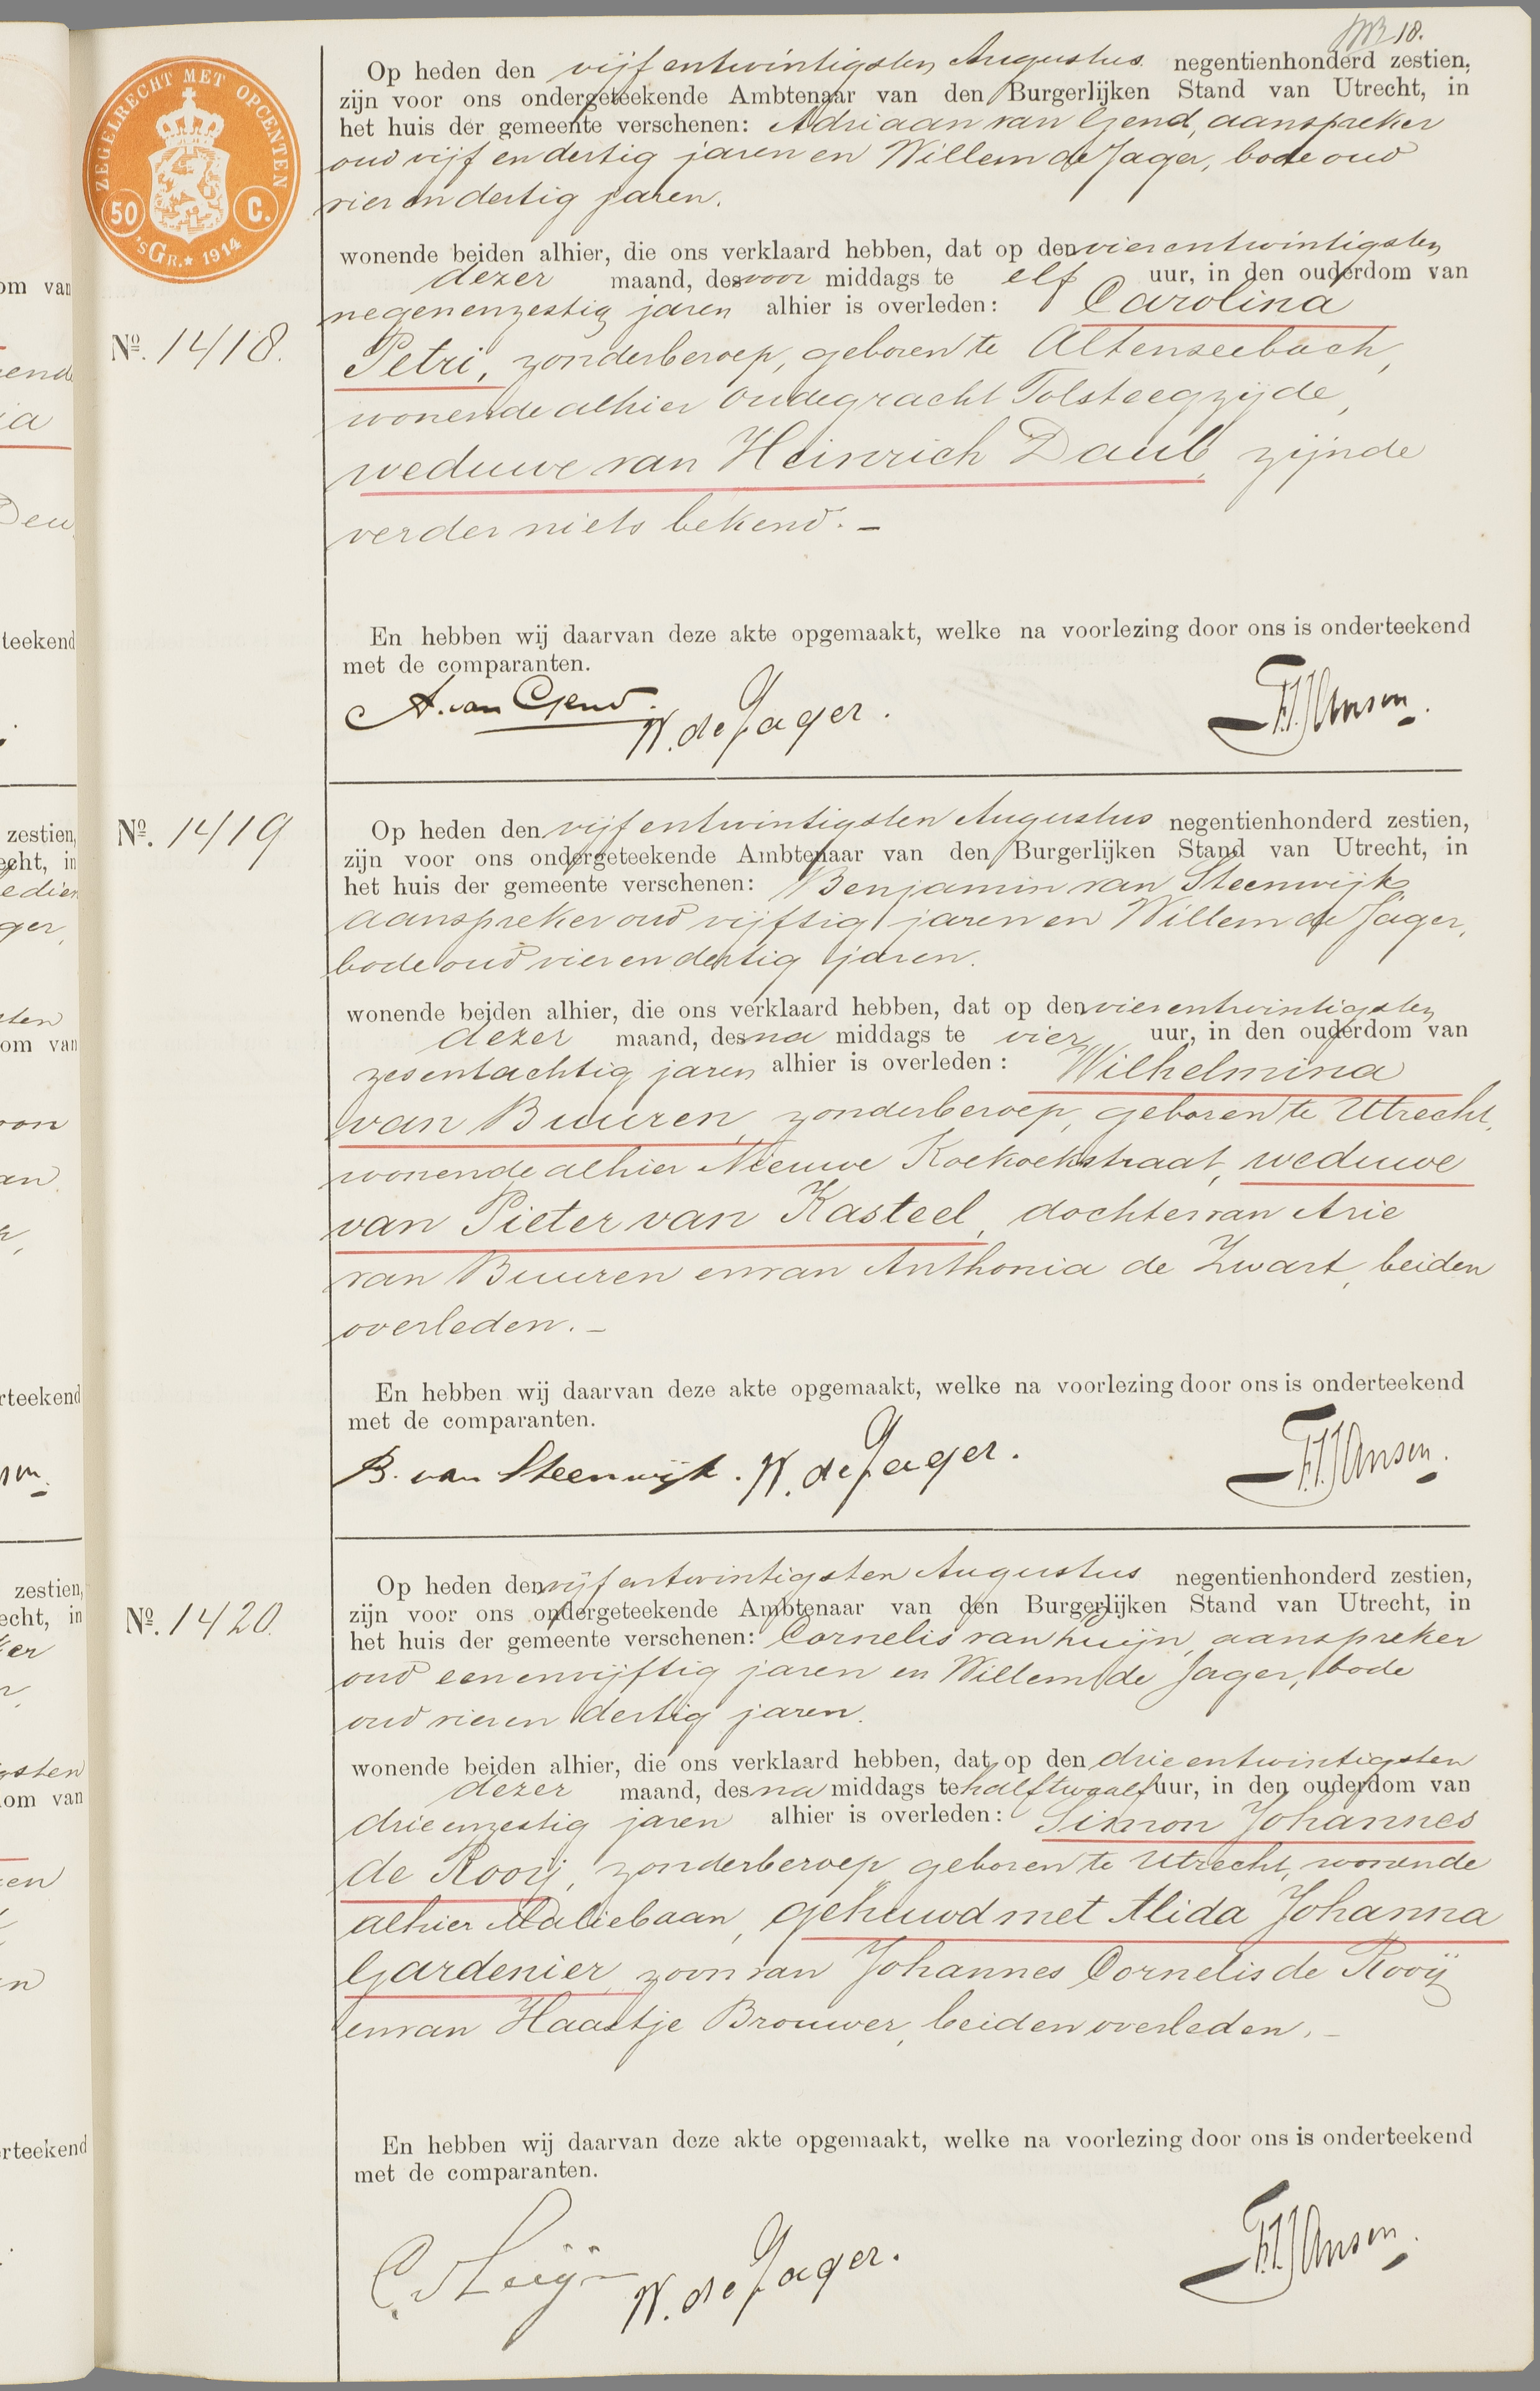 18.
ZEGELRECHT MET OPCENTEN
50 C.
'sGR. ★ 1914
Op heden den vijf entwintigsten Augustus negentienhonderd zestien,
zijn voor ons ondergeteekende Ambtenaar van den Burgerlijken Stand van Utrecht, in
het huis der gemeente verschenen: Adriaan van Gend, aanspreker
oud vijf en dertig jaren en Willem de Jager, bode oud
vier en dertig jaren.
wonende beiden alhier, die ons verklaard hebben, dat op den vierentwintigsten
dezer maand, des voor middags te elf uur, in den ouderdom van
negenenzestig jaren alhier is overleden: Carolina
No. 1418.
Petri, zonder beroep, geboren te Altenseebach,
wonende alhier Oudegracht Tolsteegzijde,
weduwe van Heinrich Daub, zijnde
verder niets bekend. —
En hebben wij daarvan deze akte opgemaakt, welke na voorlezing door ons is onderteekend
met de comparanten.
A. van Gend. W. de Jager. F.J. Jansen.
No. 1419
Op heden den vijf entwintigsten Augustus negentienhonderd zestien,
zijn voor ons ondergeteekende Ambtenaar van den Burgerlijken Stand van Utrecht, in
het huis der gemeente verschenen: Benjamin van Steenwijk,
aanspreker oud vijftig jaren en Willem de Jager,
bode oud vier en dertig jaren.
wonende beiden alhier, die ons verklaard hebben, dat op den vierentwintigsten
dezer maand, des na middags te vier uur, in den ouderdom van
zesentachtig jaren alhier is overleden: Wilhelmina
van Buuren, zonder beroep, geboren te Utrecht,
wonende alhier Nieuwe Koekoekstraat, weduwe
van Pieter van Kasteel, dochter van Arie
van Buuren en van Anthonia de Zwart, beiden
overleden. —
En hebben wij daarvan deze akte opgemaakt, welke na voorlezing door ons is onderteekend
met de comparanten.
B. van Steenwijk. W. de Jager. F.J. Jansen.
No. 1420
Op heden den vijf entwintigsten Augustus negentienhonderd zestien,
zijn voor ons ondergeteekende Ambtenaar van den Burgerlijken Stand van Utrecht, in
het huis der gemeente verschenen: Cornelis van huijn, aanspreker
oud eenenvijftig jaren en Willem de Jager, bode
oud vier en dertig jaren.
wonende beiden alhier, die ons verklaard hebben, dat op den drieentwintigsten
dezer maand, des na middags te half twaalf uur, in den ouderdom van
drieenzestig jaren alhier is overleden: Simon Johannes
de Rooij, zonder beroep, geboren te Utrecht, wonende
alhier Maliebaan, gehuwd met Alida Johanna
Gardenier, zoon van Johannes Cornelis de Rooij
en van Haastje Brouwer, beiden overleden. —
En hebben wij daarvan deze akte opgemaakt, welke na voorlezing door ons is onderteekend
met de comparanten.
C. v Huijn W. de Jager. F.J. Jansen.